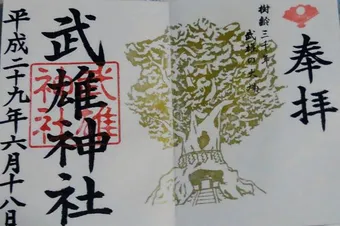 奉拝
樹齢三千年
武雄の大楠
武雄神社
武雄神社
平成二十九年六月十八日